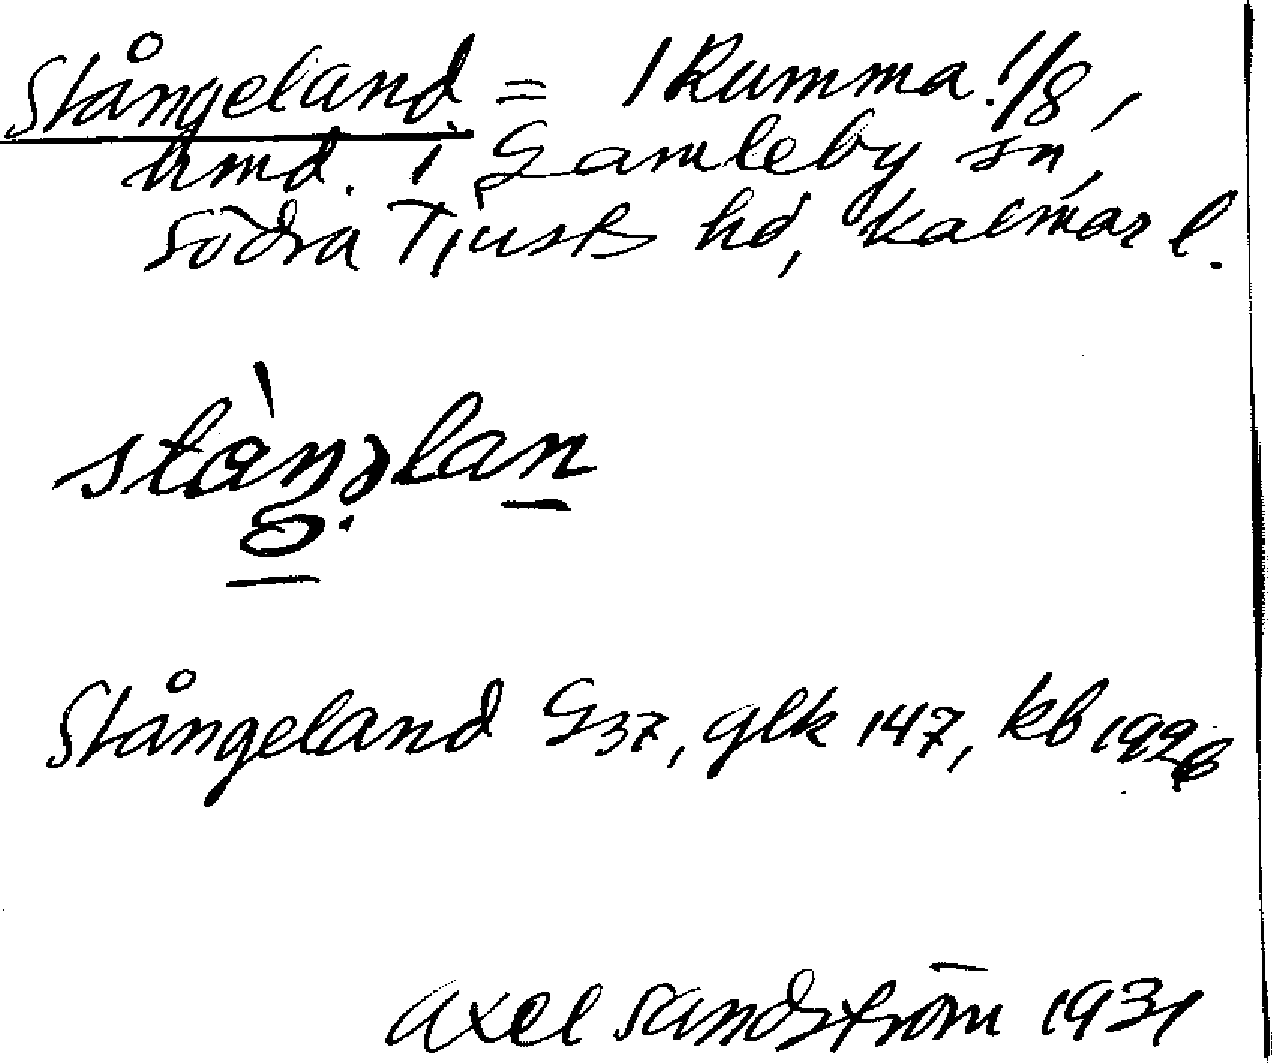 Stångeland = 1 Rumma 1/8,
hmd. i Gamleby sn,
Södra Tjusts hd, Kalmar l.
Stångeland G37, glk 147, kb 192
Axel Sandström 1931